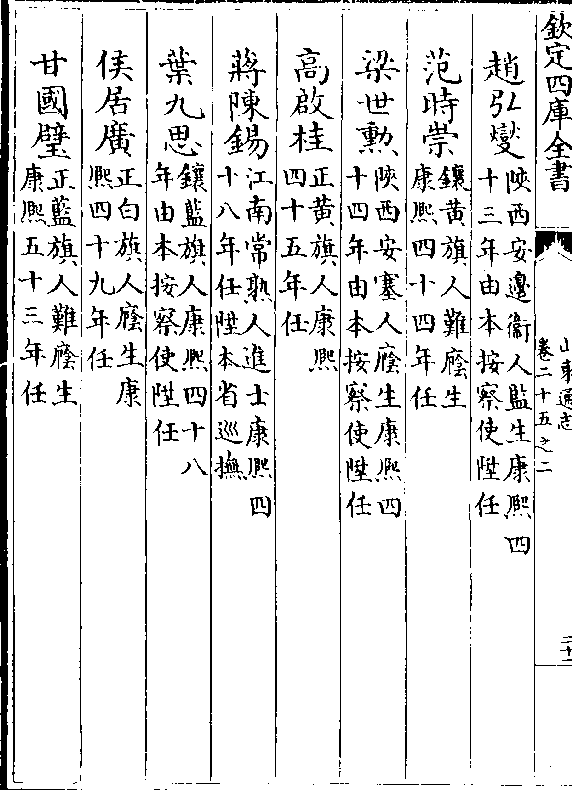 欽定四庫全書
山東通志
卷二十五之二
二十一
趙弘燮陝西安邊衞人監生康熙四
十三年由本按察使陞任
范時崇鑲黃旗人難廕生
康熙四十四年任
梁世勲陝西安塞人廕生康熙四
十四年由本按察使陞任
高啟桂正黃旗人康熙
四十五年任
蔣陳錫江南常熟人進士康熙四
十八年任陞本省巡撫
葉九思鑲藍旗人康熙四十八
年由本按察使陞任
侯居廣正白旗人廕生康
熙四十九年任
甘國璧正藍旗人難廕生
康熙五十三年任